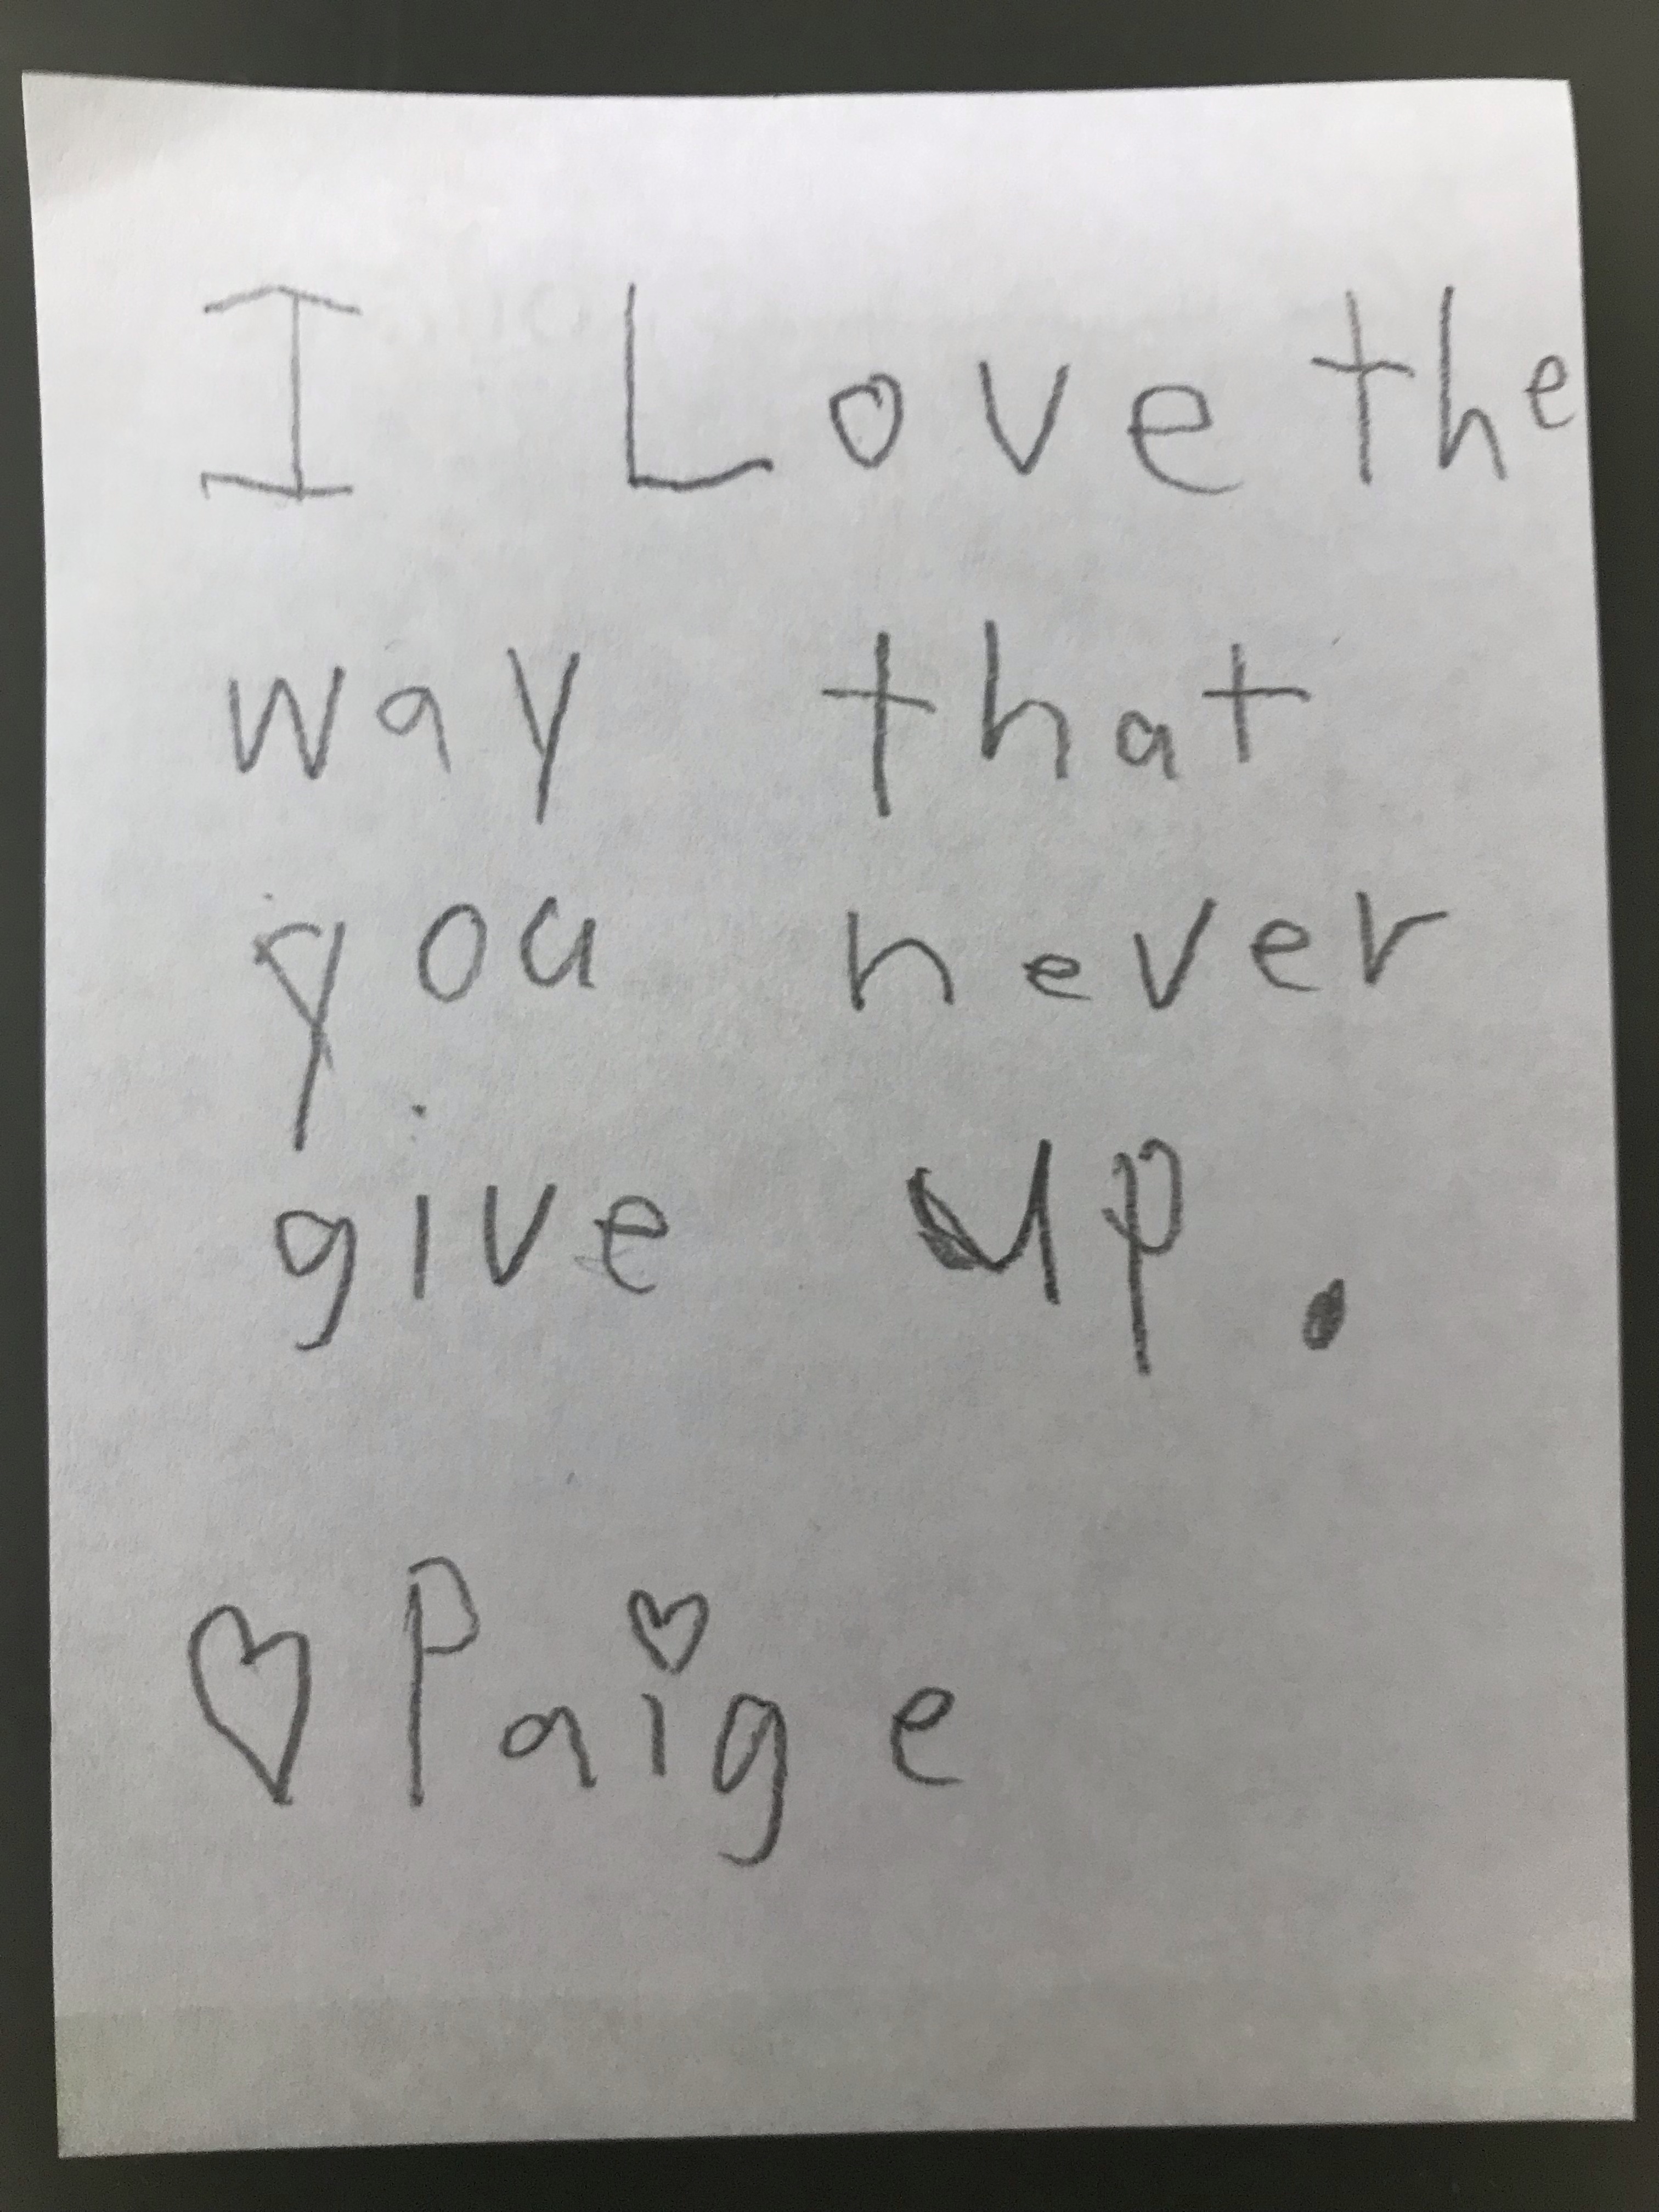 I Love the
way that
you never
give up.
♡ Paige